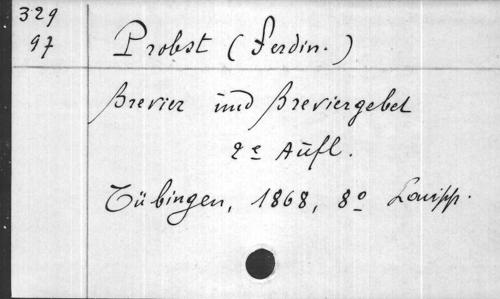 329
97
Probst (Ferdin.)
Brevier und Breviergebet
2e Aufl.
Tübingen, 1868, 8o